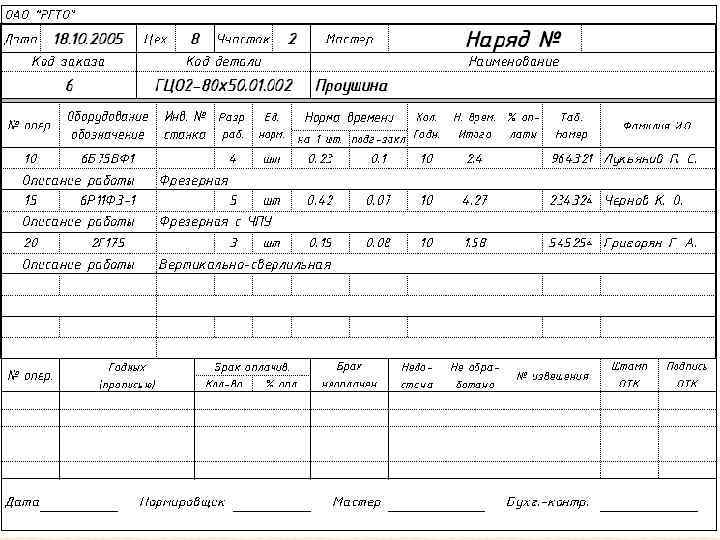 ОАО "РГТО"
Дата 18.10.2005 Цех 8 Участок 2 Мастер Наряд №
Код заказа Код детали Наименование
6 ГЦО2-80х50.01.002 Проушина
№ опер. Оборудование обозначение Инв. № станка Разр. раб. Ед. норм. Норма времени на 1 шт. подг-закл Кол. Годн. Н. врем. Итого % оплаты Таб. Номер Фамилия И.О.
10 6Б75ВФ1 4 шт 0.23 0.1 10 2.4 964321 Лукьянов П. С.
Описание работы Фрезерная
15 6Р11Ф3-1 5 шт 0.42 0.07 10 4.27 234324 Чернов К. О.
Описание работы Фрезерная с ЧПУ
20 2Г175 3 шт 0.15 0.08 10 1.58 545254 Григорян Г. А.
Описание работы Вертикально-сверлильная
№ опер. Годных (прописью) Брак оплачив. Кол-во % опл. Брак неоплачен Недостача Не обработано № извещения Штамп ОТК Подпись ОТК
Дата Нормировщик Мастер Бухг.-контр.